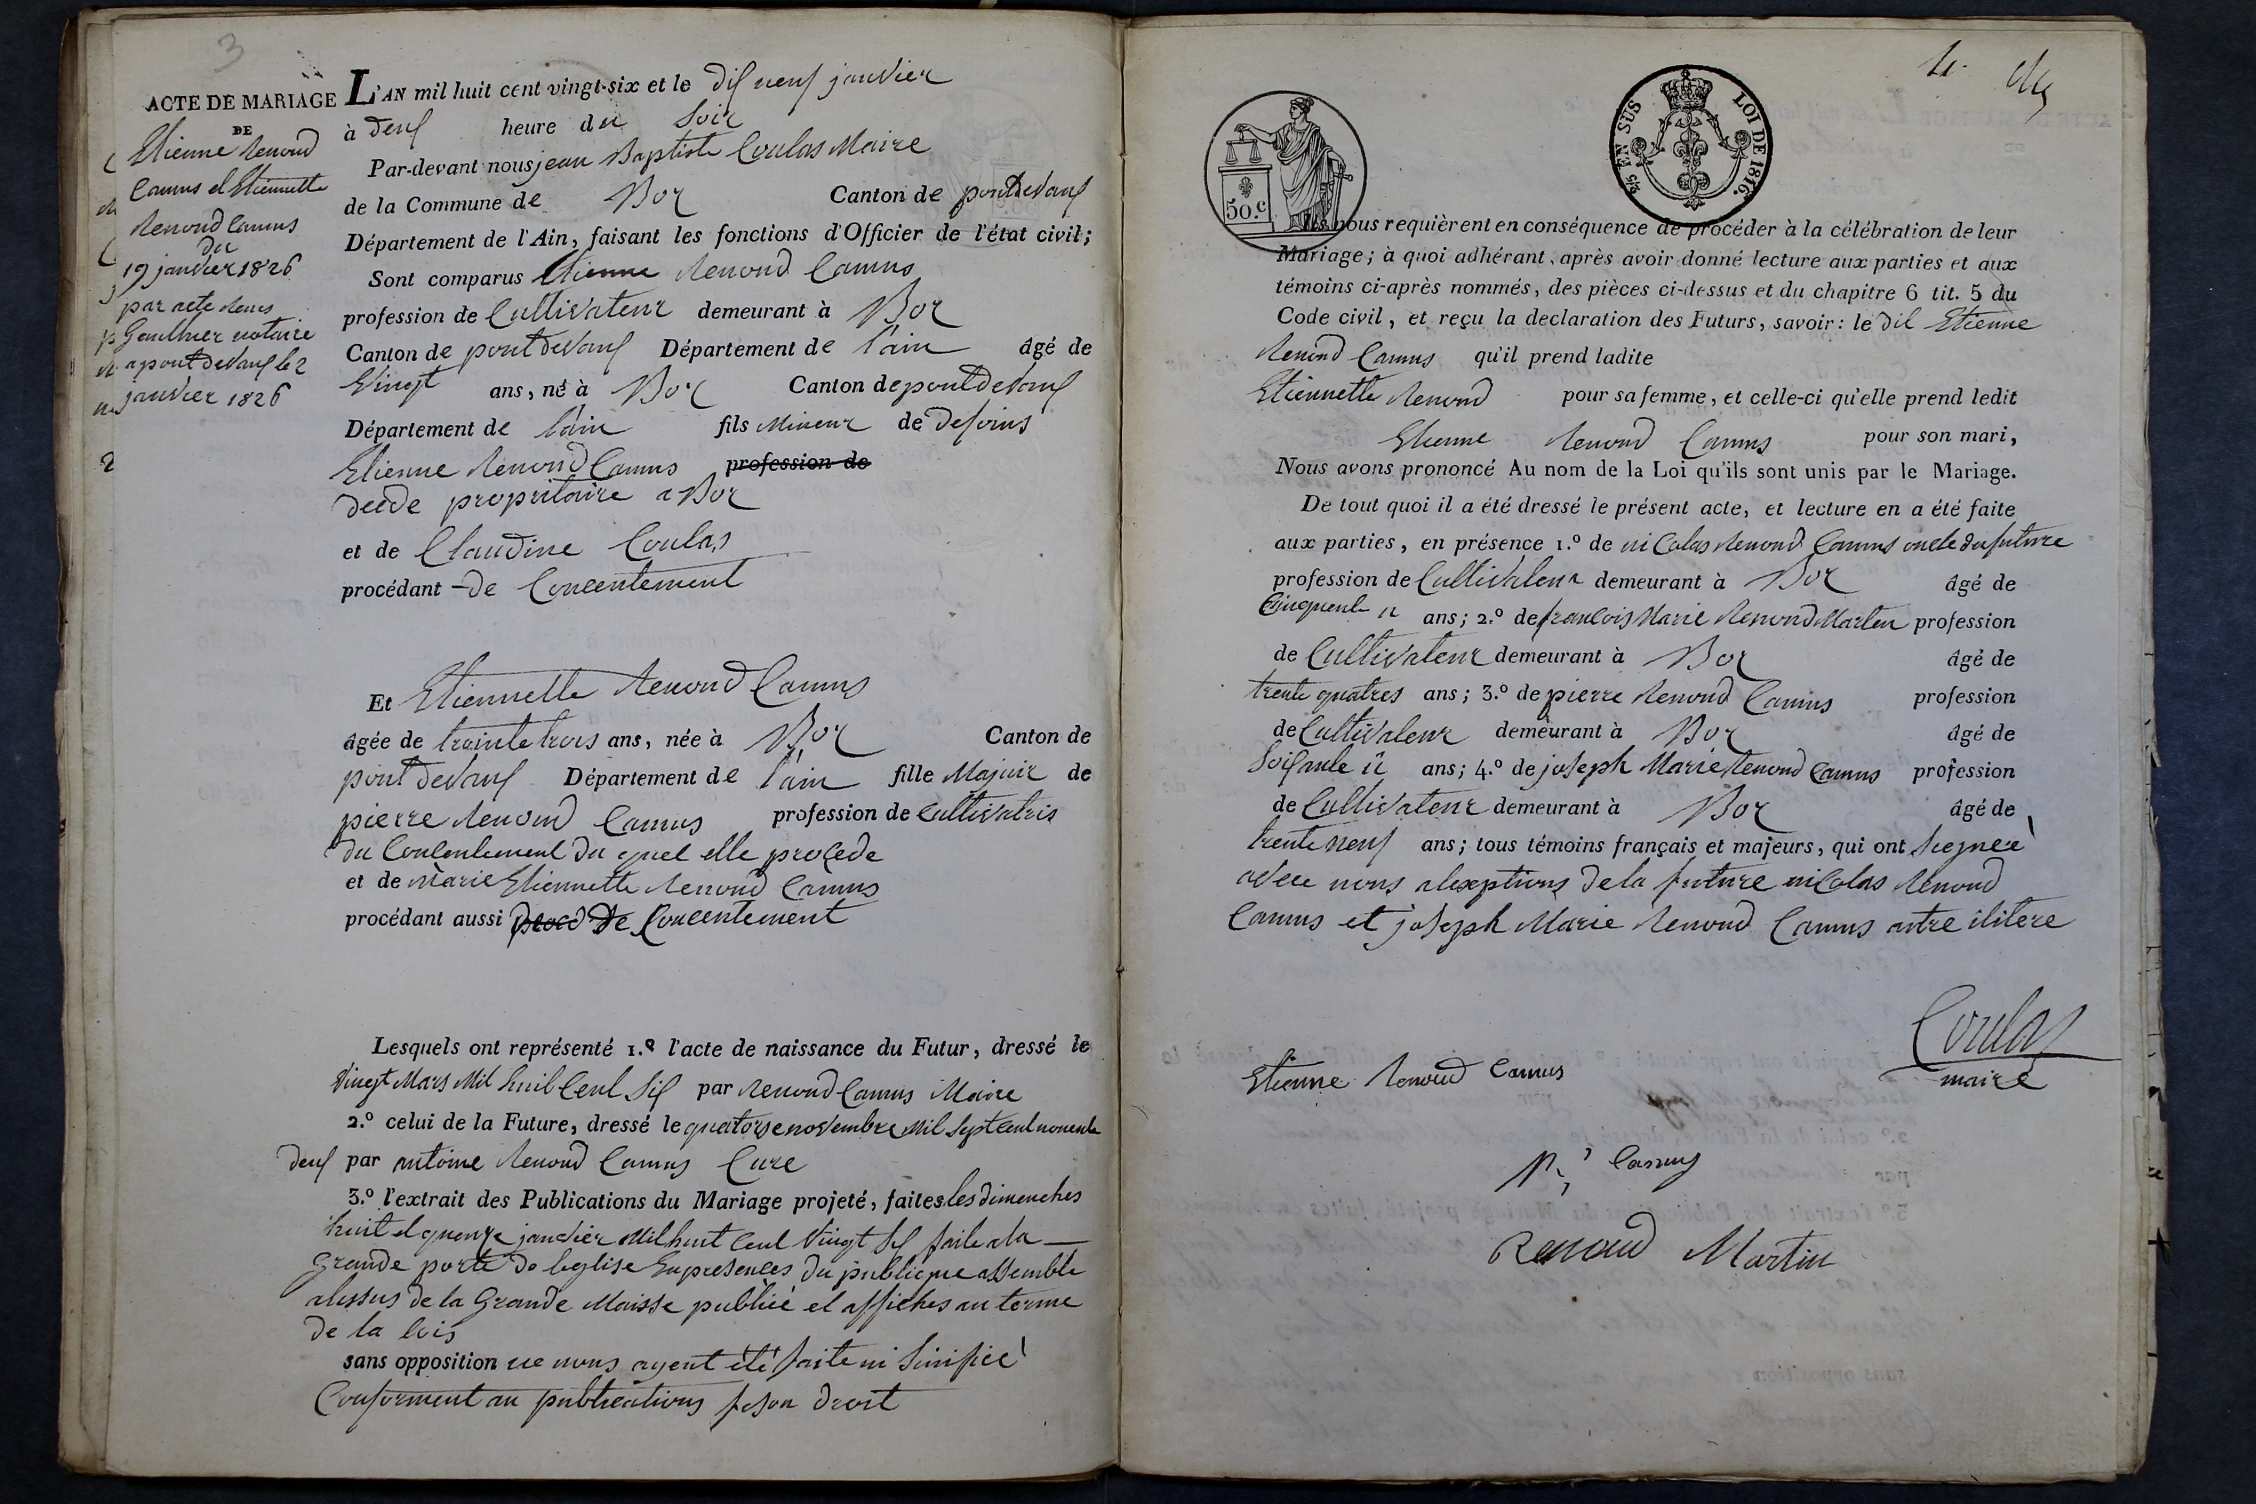 3
ACTE DE MARIAGE
DE
Etienne Renoud
Camus et Etiennette
Renoud Camus
du
19 janvier 1826
par acte
Gauthier notaire
a pont devaux le 2
janvier 1826
2
L'AN mil huit cent vingt-six et le dix neuf janvier
à deux heure du soir
Par-devant nous jean Baptiste Coulas Maire
de la Commune de Boz Canton de pontdevaux
Département de l'Ain, faisant les fonctions d'Officier de l'état civil;
Sont comparus Etienne Renoud Camus
profession de Cultivateur demeurant à Boz
Canton de pontdevaux Département de l'ain âgé de
Vingt ans, né à Boz Canton de pontdevaux
Département de l'ain fils Mineur de defoins
Etienne Renoud Camus profession de
decede propritaire a Boz
et de Claudine Coulas
procédant de Concentement
Et Etiennette Renoud Camus
âgée de trainte trois ans, née à Boz Canton de
pont devaux Département de l'ain fille Majuir de
pierre Renoud Camus profession de Cultivatris
du Concentement du quel elle procede
et de Marie Etiennette Renoud Camus
procédant aussi de Concentement
Lesquels ont représenté 1.º l'acte de naissance du Futur, dressé le
Vingt Mars Mil huit Cent Six par Renoud Camus Maire
2.º celui de la Future, dressé le quatorse novembre Mil Sept Cent nonente
deux par antoine Renoud Camus Cure
3.º l'extrait des Publications du Mariage projeté, faites les dimenches
huit et quenze janvier Mil huit Cent Vingt Six faite a la
Grande porte de leglise Enpresences du publicque assemblé
alissus de la Grande Maisse publiée et affiches au terme
de la lois
sans opposition ne nous ayent été faite ni Sinifieé
Conforment au publications son droit
4.
50.C
2/5 EN SUS LOI DE 1816.
Ils nous requièrent en conséquence de procéder à la célébration de leur
Mariage; à quoi adhérant, après avoir donné lecture aux parties et aux
témoins ci-après nommés, des pièces ci-dessus et du chapitre 6 tit. 5 du
Code civil, et reçu la declaration des Futurs, savoir: le dit Etienne
Renoud Camus qu'il prend ladite
Etiennette Renoud pour sa femme, et celle-ci qu'elle prend ledit
Etienne Renoud Camus pour son mari,
Nous avons prononcé Au nom de la Loi qu'ils sont unis par le Mariage.
De tout quoi il a été dressé le présent acte, et lecture en a été faite
aux parties, en présence 1.º de niColas Renoud Camus oncle du future
profession de Cultivateur demeurant à Boz âgé de
Cinquente u ans; 2.º de françois Marie Renoud Marten profession
de Cultivateur demeurant à Boz âgé de
trente quatres ans; 3.º de pierre Renoud Camus profession
de Cultivateur demeurant à Boz âgé de
Soixante u ans; 4.º de joseph Marie Renoud Camus profession
de Cultivateur demeurant à Boz âgé de
trente neuf ans; tous témoins français et majeurs, qui ont Siegneé
avece nous alexptions de la future niColas Renoud
Camus et joseph Marie Renoud Camus autre ilitere
Coulas
maire
Etienne Renoud Camus
Camus
Renoud Martin